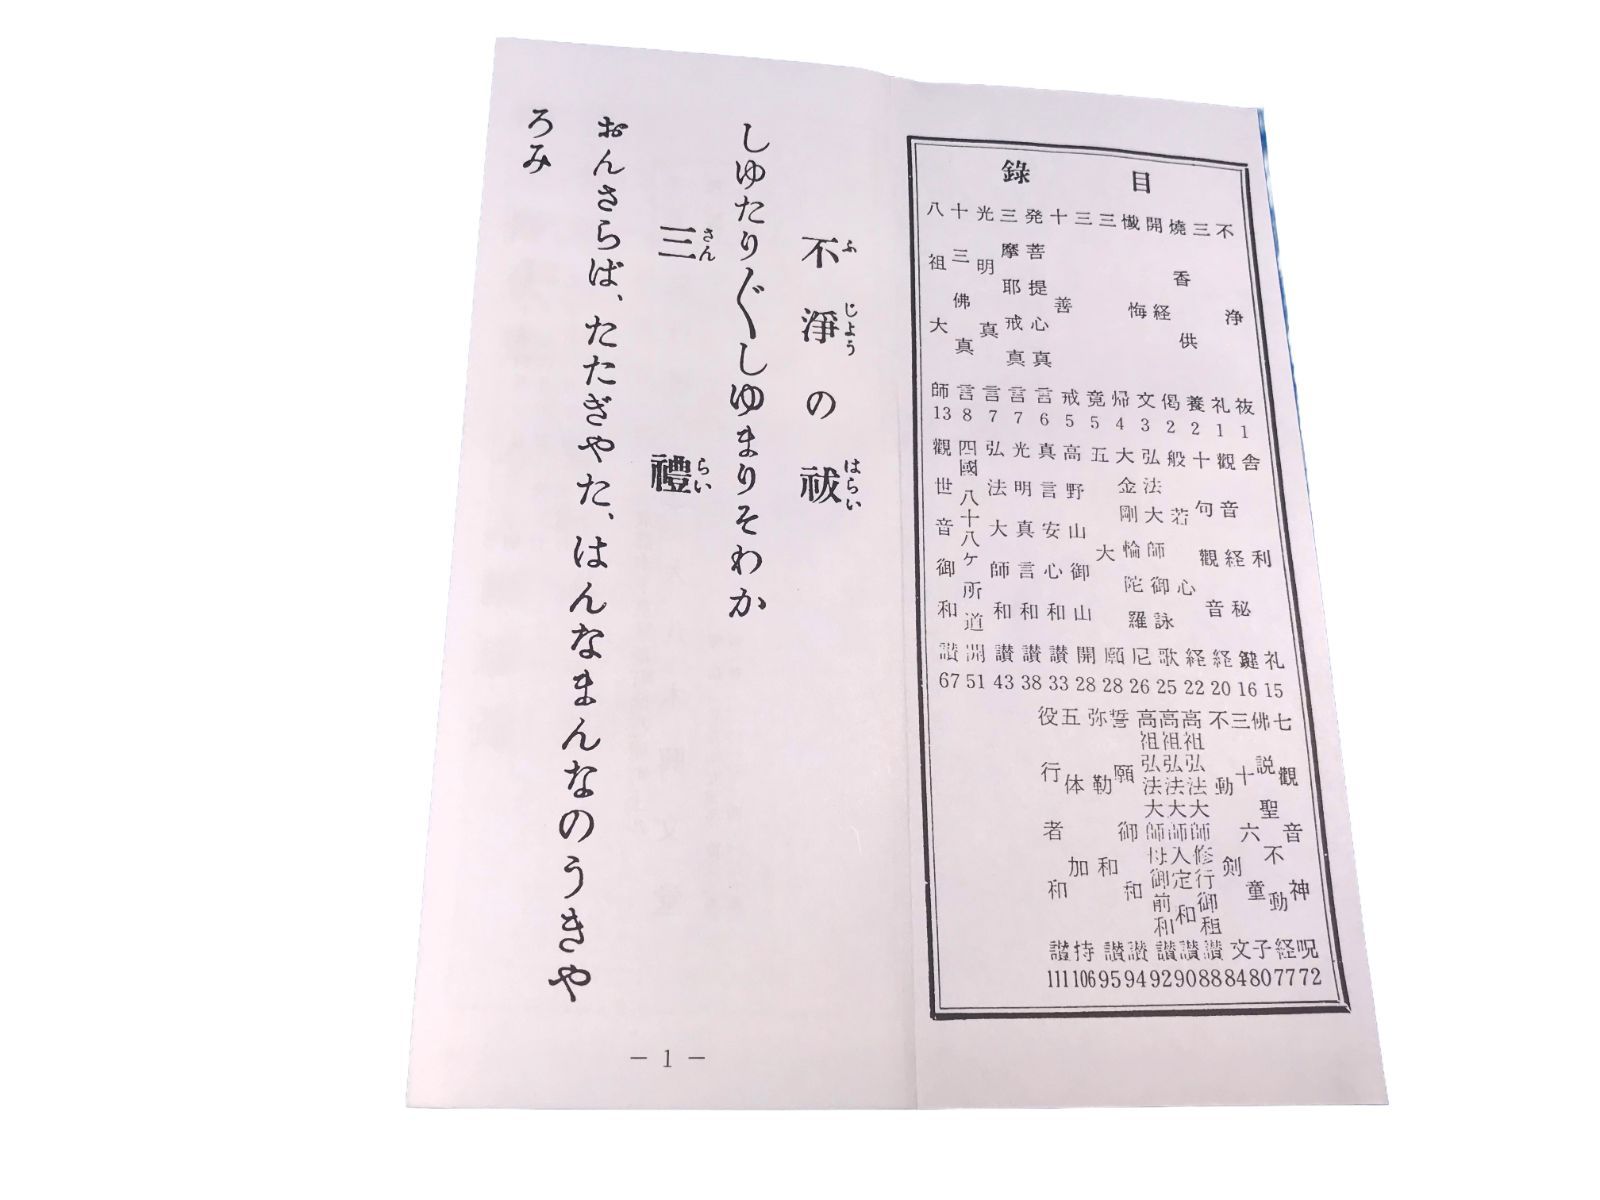 目錄
不浄祓1
三礼1
燒香供養2
開経偈2
懴悔文3
三帰4
三竟5
十善戒5
発菩提心真言6
三摩耶戒真言7
光明真言7
十三佛真言8
八祖大師13
舎利礼15
觀音経秘鍵16
十句觀音経20
般若心経22
弘法大師御詠歌25
大金剛輪陀羅尼26
五大願28
高野山御山開28
真言安心和讃33
光明真言和讃38
弘法大師和讃43
四國八十八ヶ所道開51
觀世音御和讃67
七觀音神呪72
佛説聖不動経77
三十六童子80
不動剣文84
高祖弘法大師修行御租讃88
高祖弘法大師入定和讃90
高祖弘法大師母御前和讃92
誓願御和讃94
弥勒和讃95
五体加持106
役行者和讃111
不淨の祓
ふじようはらい
しゆたり〴〵しゆまりそわか
三禮
さんらい
おんさらば、たたぎやた、はんなまんなのうきや
ろみ
− 1 −